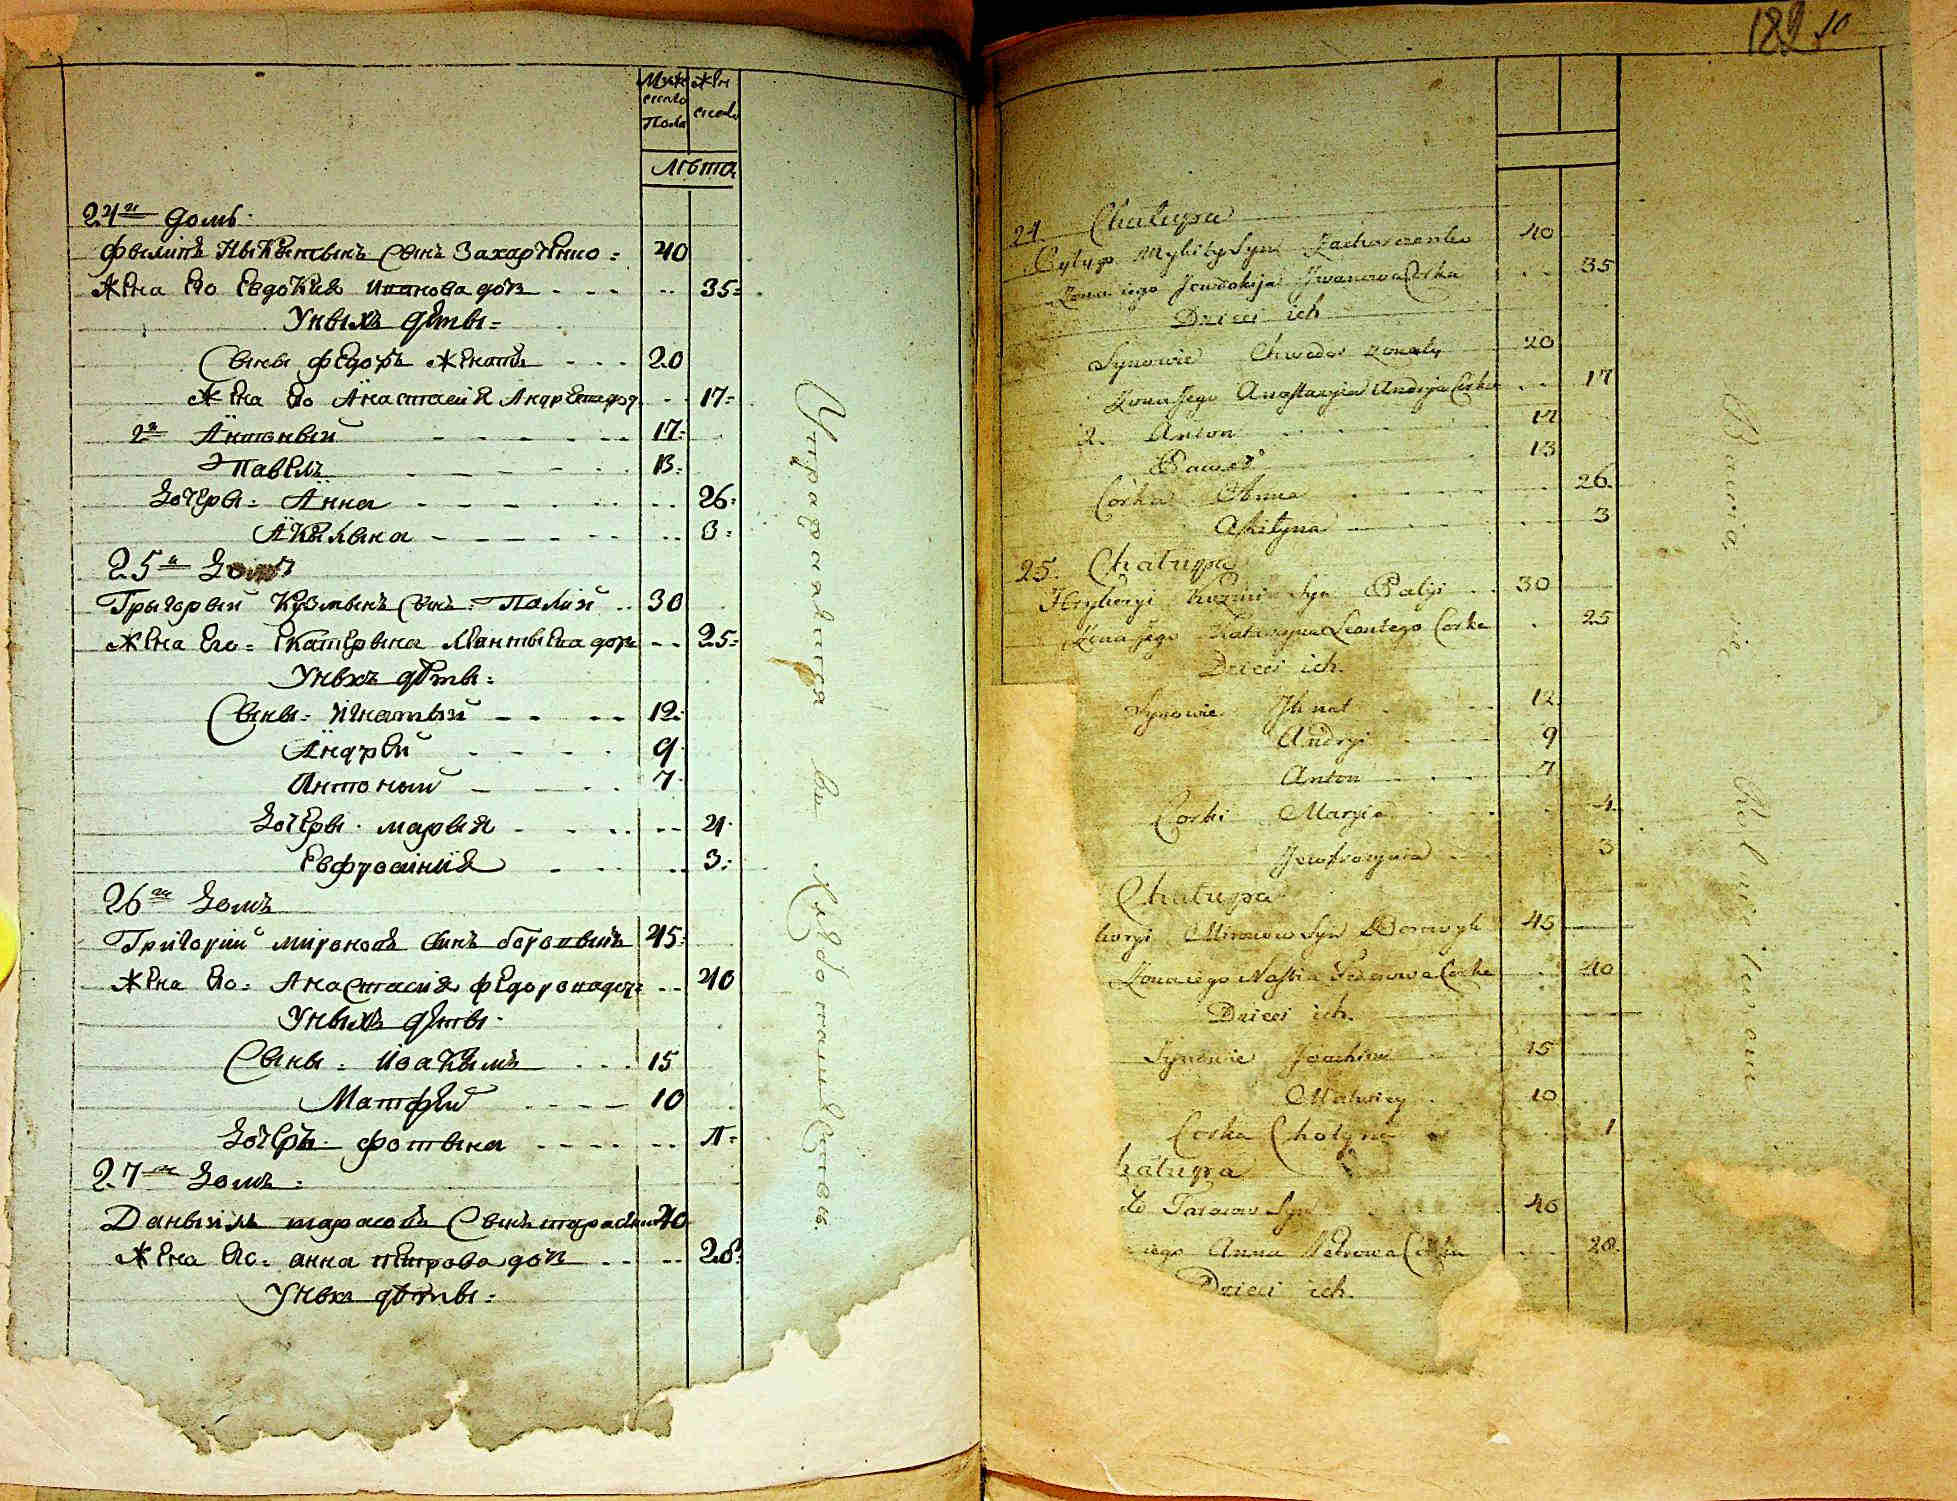 Муж
ского
Пола
Жен
ского
Лѣта
24й домъ
Филипъ Ныкитынъ Сынъ Захарченко 40
Жена Его Евдокия Иванова доч 35
У ныхъ дѣты
Сыны Федоръ Женатъ 20
Жена Его Анастасия Андреева доч 17
2й Антоный 17
Павелъ 13
Дочеры Анна 26
Акилына 3
25й Домъ
Грыгорый Кузмынъ Сынъ Палий 30
Жена Его Екатерына Леонтыева доч 25
У ныхъ дѣты
Сыны Игнатый 12
Андрей 9
Антоный 7
Дочеры марыя 4
Евфросиния 3
26й Домъ
Григорий мироновъ сынъ боровыкъ 45
Жена Его Анастасия федорова доч 40
У ныхъ дѣты
Сыны Иоакымъ 15
Матфей 10
Дочеръ фотына
27й Домъ
Даныилъ тарасовъ Сынъ 40
Жена Его анна петрова доч 28
У ныхъ дѣты
Справляются въ
182 10
24. Chałupa
Pylyp Mykity Syn Zacharczenko 40
Zona iego Jewdokija Jwanowa Corka 35
Dzieci ich
Synowie Chwedor zonaty 20
Zona Jego Anastazyia Andryja Corka 17
2. Anton 17
Paweł 13
Corka Anna 26
Akilyna 3
25. Chałupa
Hryhoryi Kuzmi Syn Palyi 30
Zona Jego Katarzyna Leontego Corka 25
Dzieci ich.
Synowie Jhnat 12
Andryi 9
Anton 7
Corki Maryia 4
Jewfrozynia 3
Chałupa
horyi Mironow Syn Borowyk 45
Zona iego Nastia Fedorowa Corka 40
Dzieci ich.
Synowie Joachim 15
Matwiey 10
Corka Chotyna 1
hałupa
Tarasow Syn 40
iego Anna Petrowa Corka 28
Dzieci ich.